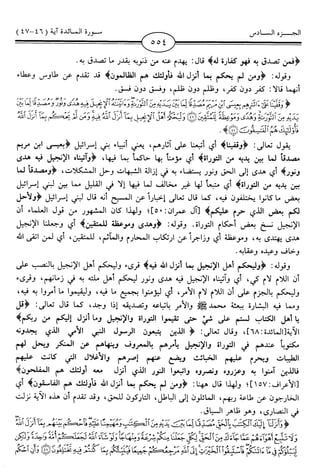 الجـزء السادس
٥٥٤
سورة المـائدة آية (٤٦-٤٧)
﴿فمن تصدق به فهو كفارة له﴾ قال: يهدم عنه من ذنوبه بقدر ما تصدق به.
وقوله: ﴿ومن لم يحكم بما أنزل الله فأولئك هم الظالمون﴾ قد تقدم عن طاوس وعطاء
أنهما قالا: كفر دون كفر، وظلم دون ظلم، وفسق دون فسق.
﴿وَقَفَّيْنَا عَلَىٰ آثَارِهِم بِعِيسَى ابْنِ مَرْيَمَ مُصَدِّقًا لِّمَا بَيْنَ يَدَيْهِ مِنَ التَّوْرَاةِ وَآتَيْنَاهُ الْإِنجِيلَ فِيهِ هُدًى وَنُورٌ وَمُصَدِّقًا لِّمَا بَيْنَ
يَدَيْهِ مِنَ التَّوْرَاةِ وَهُدًى وَمَوْعِظَةً لِّلْمُتَّقِينَ ﴿٤٦﴾ وَلْيَحْكُمْ أَهْلُ الْإِنجِيلِ بِمَا أَنزَلَ اللَّهُ فِيهِ وَمَن لَّمْ يَحْكُم بِمَا أَنزَلَ اللَّهُ
فَأُولَٰئِكَ هُمُ الْفَاسِقُونَ ﴿٤٧﴾﴾
يقول تعالى: ﴿وقفينا﴾ أي أتبعنا على آثارهم، يعني أنبياء بني إسرائيل ﴿بعيسى ابن مريم
مصدقاً لما بين يديه من التوراة﴾ أي مؤمناً بها حاكماً بما فيها، ﴿وآتيناه الإنجيل فيه هدى
ونور﴾ أي هدى إلى الحق ونور يستضاء به في إزالة الشبهات وحل المشكلات، ﴿ومصدقاً لما
بين يديه من التوراة﴾ أي متبعاً لها غير مخالف لما فيها إلا في القليل مما بين لبني إسرائيل
بعض ما كانوا يختلفون فيه، كما قال تعالى إخباراً عن المسيح أنه قال لبني إسرائيل ﴿ولأحل
لكم بعض الذي حرم عليكم﴾ [آل عمران: ٥٠]؛ ولهذا كان المشهور من قول العلماء أن
الإنجيل نسخ بعض أحكام التوراة. وقوله: ﴿وهدى وموعظة للمتقين﴾ أي وجعلنا الإنجيل
هدى يهتدى به، وموعظة أي زاجراً عن ارتكاب المحارم والمآثم، للمتقين، أي لمن اتقى الله
وخاف وعيده وعقابه.
وقوله: ﴿وليحكم أهل الإنجيل بما أنزل الله فيه﴾ قرىء وليحكم أهل الإنجيل بالنصب على
أن اللام لام كي، أي وآتيناه الإنجيل فيه هدى ونور ليحكم أهل ملته به في زمانهم، وقرىء
وليحكم بالجزم على أن اللام لام الأمر، أي ليؤمنوا بجميع ما فيه، وليقيموا ما أمروا به فيه،
ومما فيه البشارة ببعثة محمد ﷺ والأمر باتباعه وتصديقه إذا وجد، كما قال تعالى: ﴿قل
يا أهل الكتاب لستم على شيء حتى تقيموا التوراة والإنجيل وما أنزل إليكم من ربكم﴾
الآية[المائدة: ٦٨]، وقال تعالى: ﴿الذين يتبعون الرسول النبي الأمي الذي يجدونه
مكتوباً عندهم في التوراة والإنجيل يأمرهم بالمعروف وينهاهم عن المنكر ويحل لهم
الطيبات ويحرم عليهم الخبائث ويضع عنهم إصرهم والأغلال التي كانت عليهم
فالذين آمنوا به وعزروه ونصروه واتبعوا النور الذي أنزل معه أولئك هم المفلحون﴾
[الأعراف: ١٥٧]؛ ولهذا قال ههنا: ﴿ومن لم يحكم بما أنزل الله فأولئك هم الفاسقون﴾ أي
الخارجون عن طاعة ربهم، المائلون إلى الباطل، التاركون للحق، وقد تقدم أن هذه الآية نزلت
في النصارى، وهو ظاهر السياق.
﴿وَأَنزَلْنَا إِلَيْكَ الْكِتَابَ بِالْحَقِّ مُصَدِّقًا لِّمَا بَيْنَ يَدَيْهِ مِنَ الْكِتَابِ وَمُهَيْمِنًا عَلَيْهِ فَاحْكُم بَيْنَهُم بِمَا أَنزَلَ اللَّهُ
وَلَا تَتَّبِعْ أَهْوَاءَهُمْ عَمَّا جَاءَكَ مِنَ الْحَقِّ لِكُلٍّ جَعَلْنَا مِنكُمْ شِرْعَةً وَمِنْهَاجًا وَلَوْ شَاءَ اللَّهُ لَجَعَلَكُمْ أُمَّةً وَاحِدَةً وَلَٰكِن